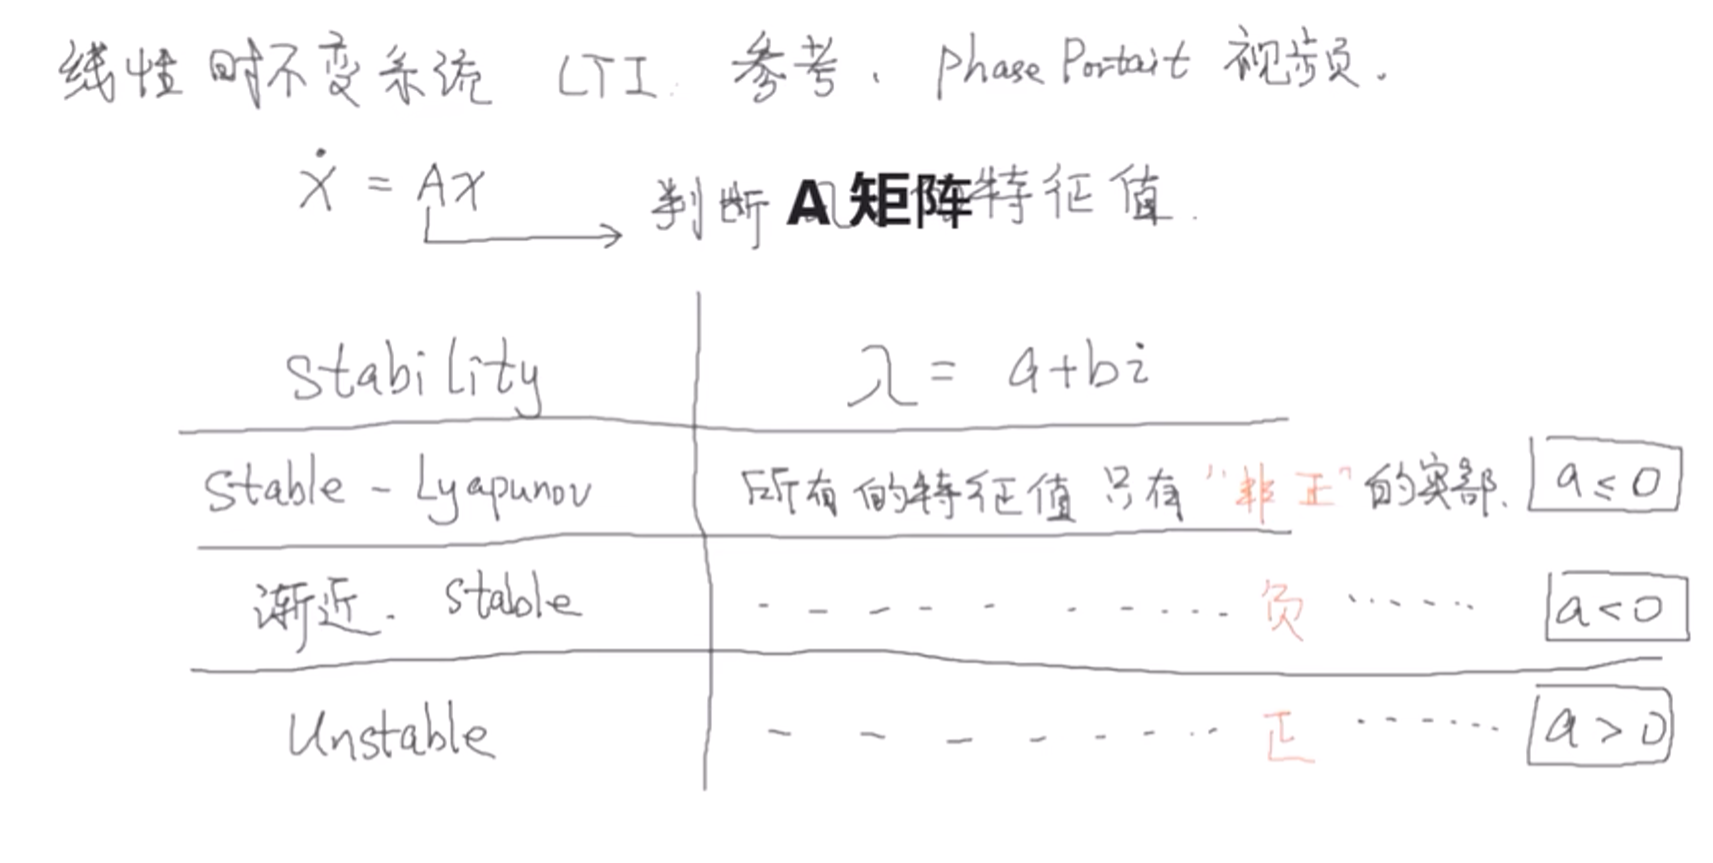 线性时不变系统 LTI. 参考. Phase Portait 视频.
ẋ = Ax
判断 A 矩阵特征值.
Stability λ = a+bi
Stable - Lyapunov 所有的特征值只有 "非正" 的实部. a ≤ 0
渐近. Stable - - - - - - - - 负 ...... a < 0
Unstable - - - - - - - - 正 ...... a > 0